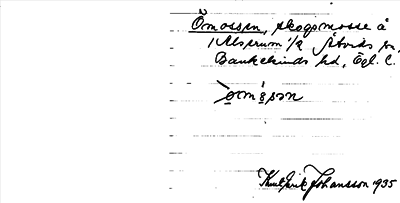 Ömossen, skogsmosse å
1 Alserum 1/2 Åtvids sn,
Bankekinds hd, Ögl. C.
òrmǻsən
Knut Erik Johansson 1935